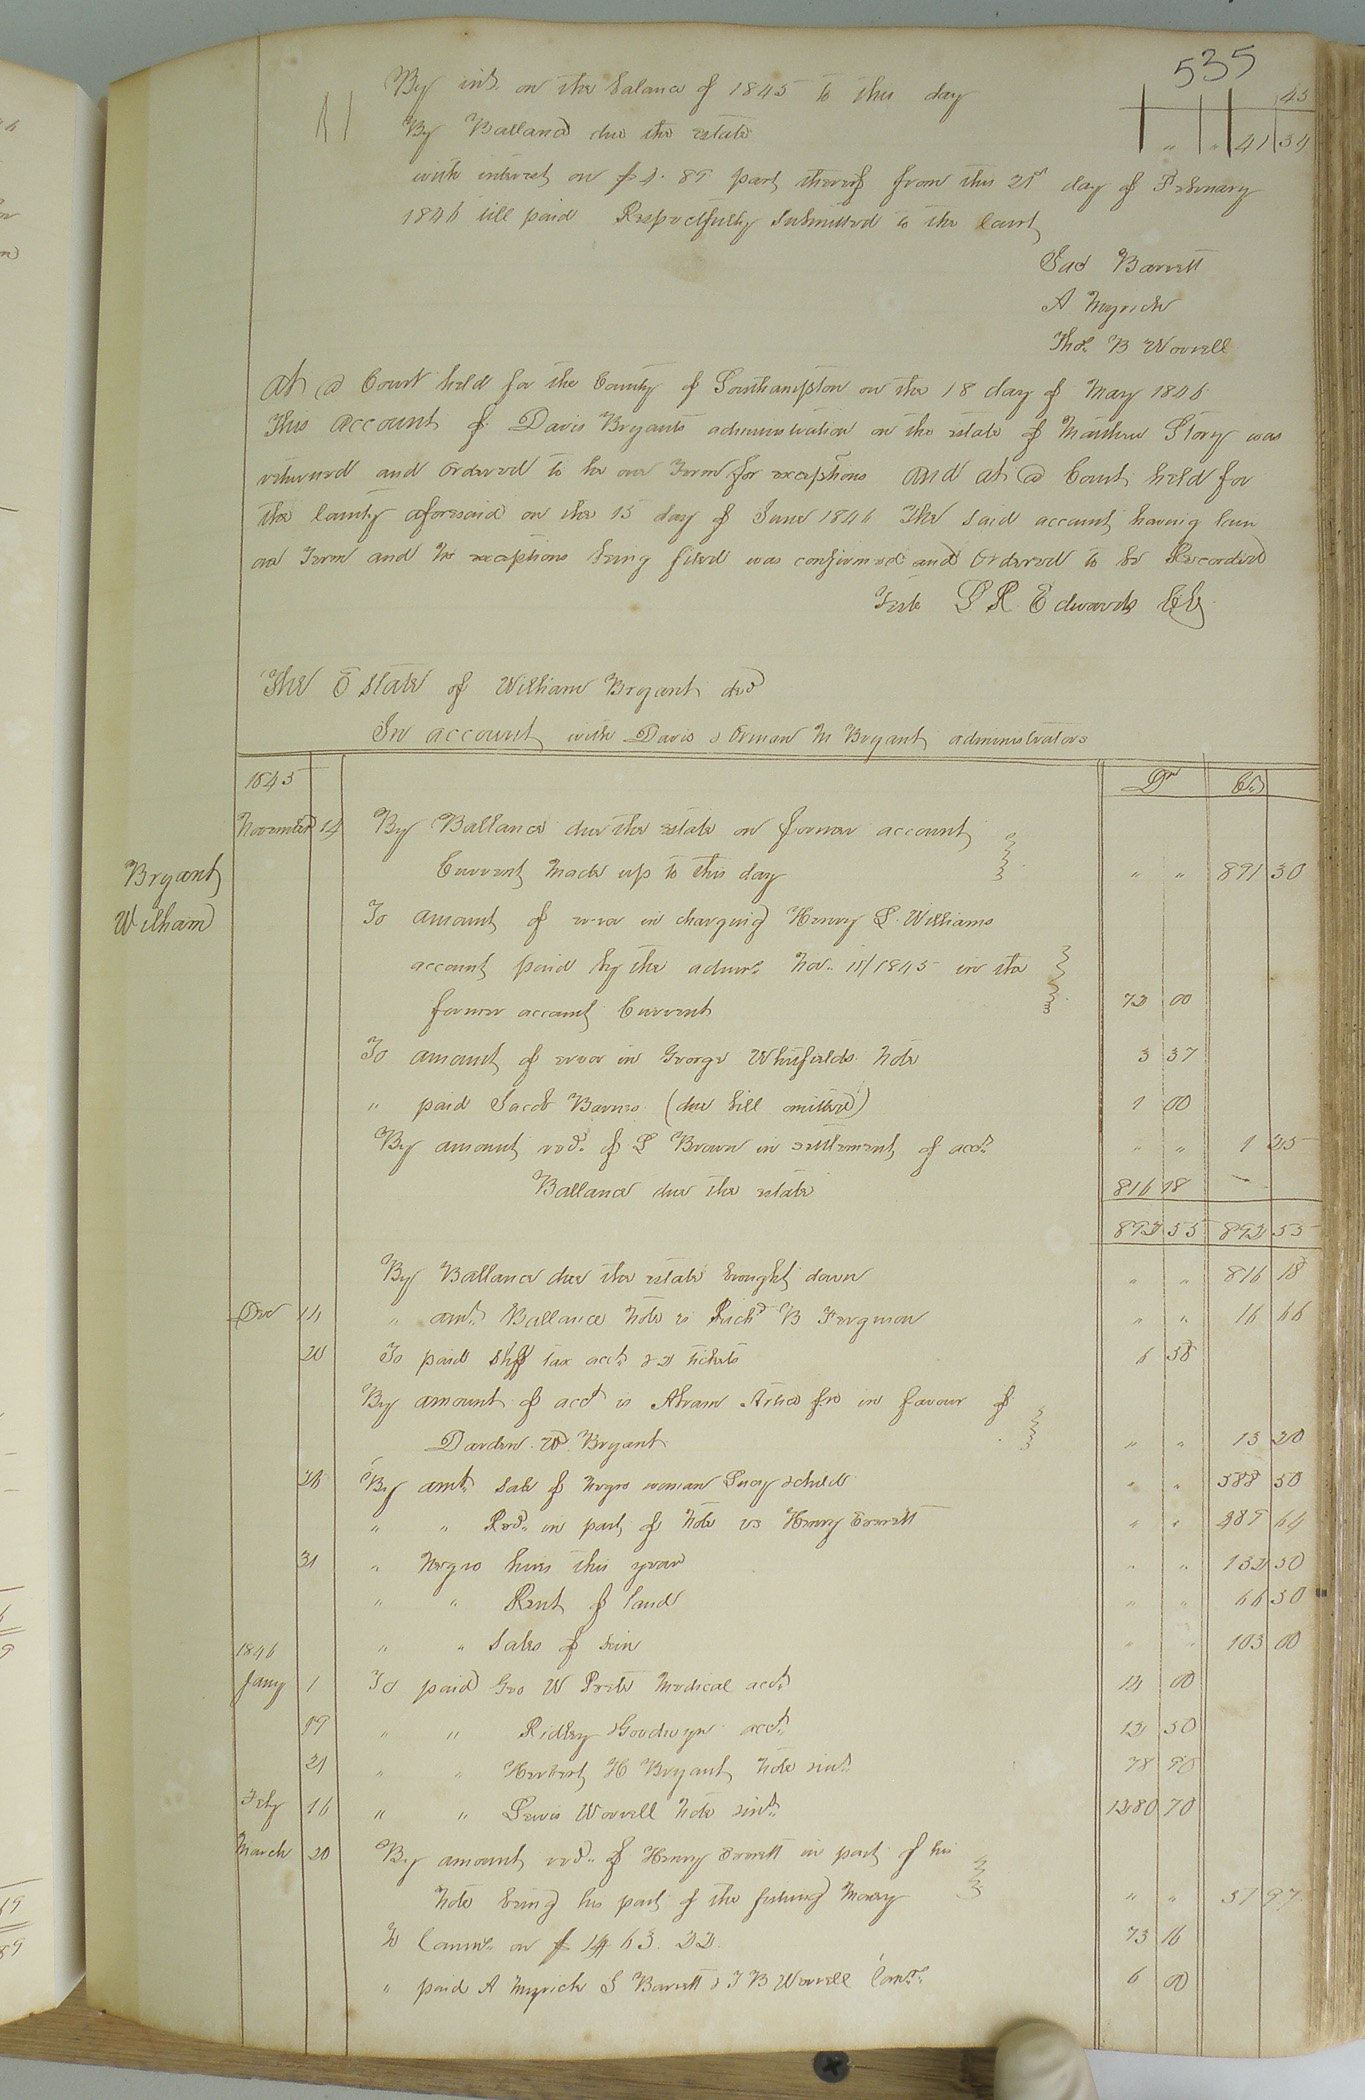 535
By int. on the balance of 1845 to this day 45
By Ballance due the estate " " 41 34
with interest on $4.89 part thereof from this 21st day of February
1846 till paid Respectfully Submitted to the Court
Jas Barrett
A Myrick
Thos. B Worrell
At a Court held for the County of Southampton on the 18 day of May 1846
This account of Davis Bryants administration on the estate of Matthew Story was
returned and ordered to lie one Term for exceptions And at a Court held for
the County aforesaid on the 15 day of June 1846 The said account having lain
one Term and No exceptions being filed was confirmed and Ordered to be Recorded
Teste L R Edwards Clk
The Estate of William Bryant decd
In account with Davis & Orman M Bryant administrators
1845 Dr Cr
November 14 By Ballance due the estate on former account
Current Made up to this day " " 891 30
Bryant
William
To amount of error in charging Henry L. Williams
account paid by the admrs. Nov. 15/1845 in the
former account Current 72 00
To amount of error in George Whitfields Note 3 37
" paid Jacob Barnes (due bill omitted) 1 00
By amount recd. of L Brown in settlement of acct. " " 1 25
Ballance due the estate 816 18
892 55 892 55
By Ballance due the estate brought down " " 816 18
Dec 14 " amt. Ballance Note vs Richd B Ferguson " " 16 66
20 To paid Shff tax acct. & 2 tickets 6 58
By amount of acct vs Abram in favour of
Darden & Bryant " " 13 20
26 By amt. Sale of Negro woman Lucy & child " " 588 50
" " Recd. in part of Note vs Henry Everett " " 489 64
31 " Negro hires this year " " 132 50
" " Rent of land " " 66 50
1846 " " Sales of " " 103 00
Jany 1 To paid Geo W Peete Medical acct. 14 00
19 " " Ridley & Goodwyn acct. 12 50
21 " " Herbert H Bryant Note & int. 78 90
Feby 16 " " Lewis Worrell Note & int. 1280 70
March 20 By amount recd. of Henry Everett in part of his
Note being his part of the fishing Money " " 37 97
To Comms. on $1463.22. 73 16
" paid A Myrick J Barrett & T B Worrell Comrs. 6 00